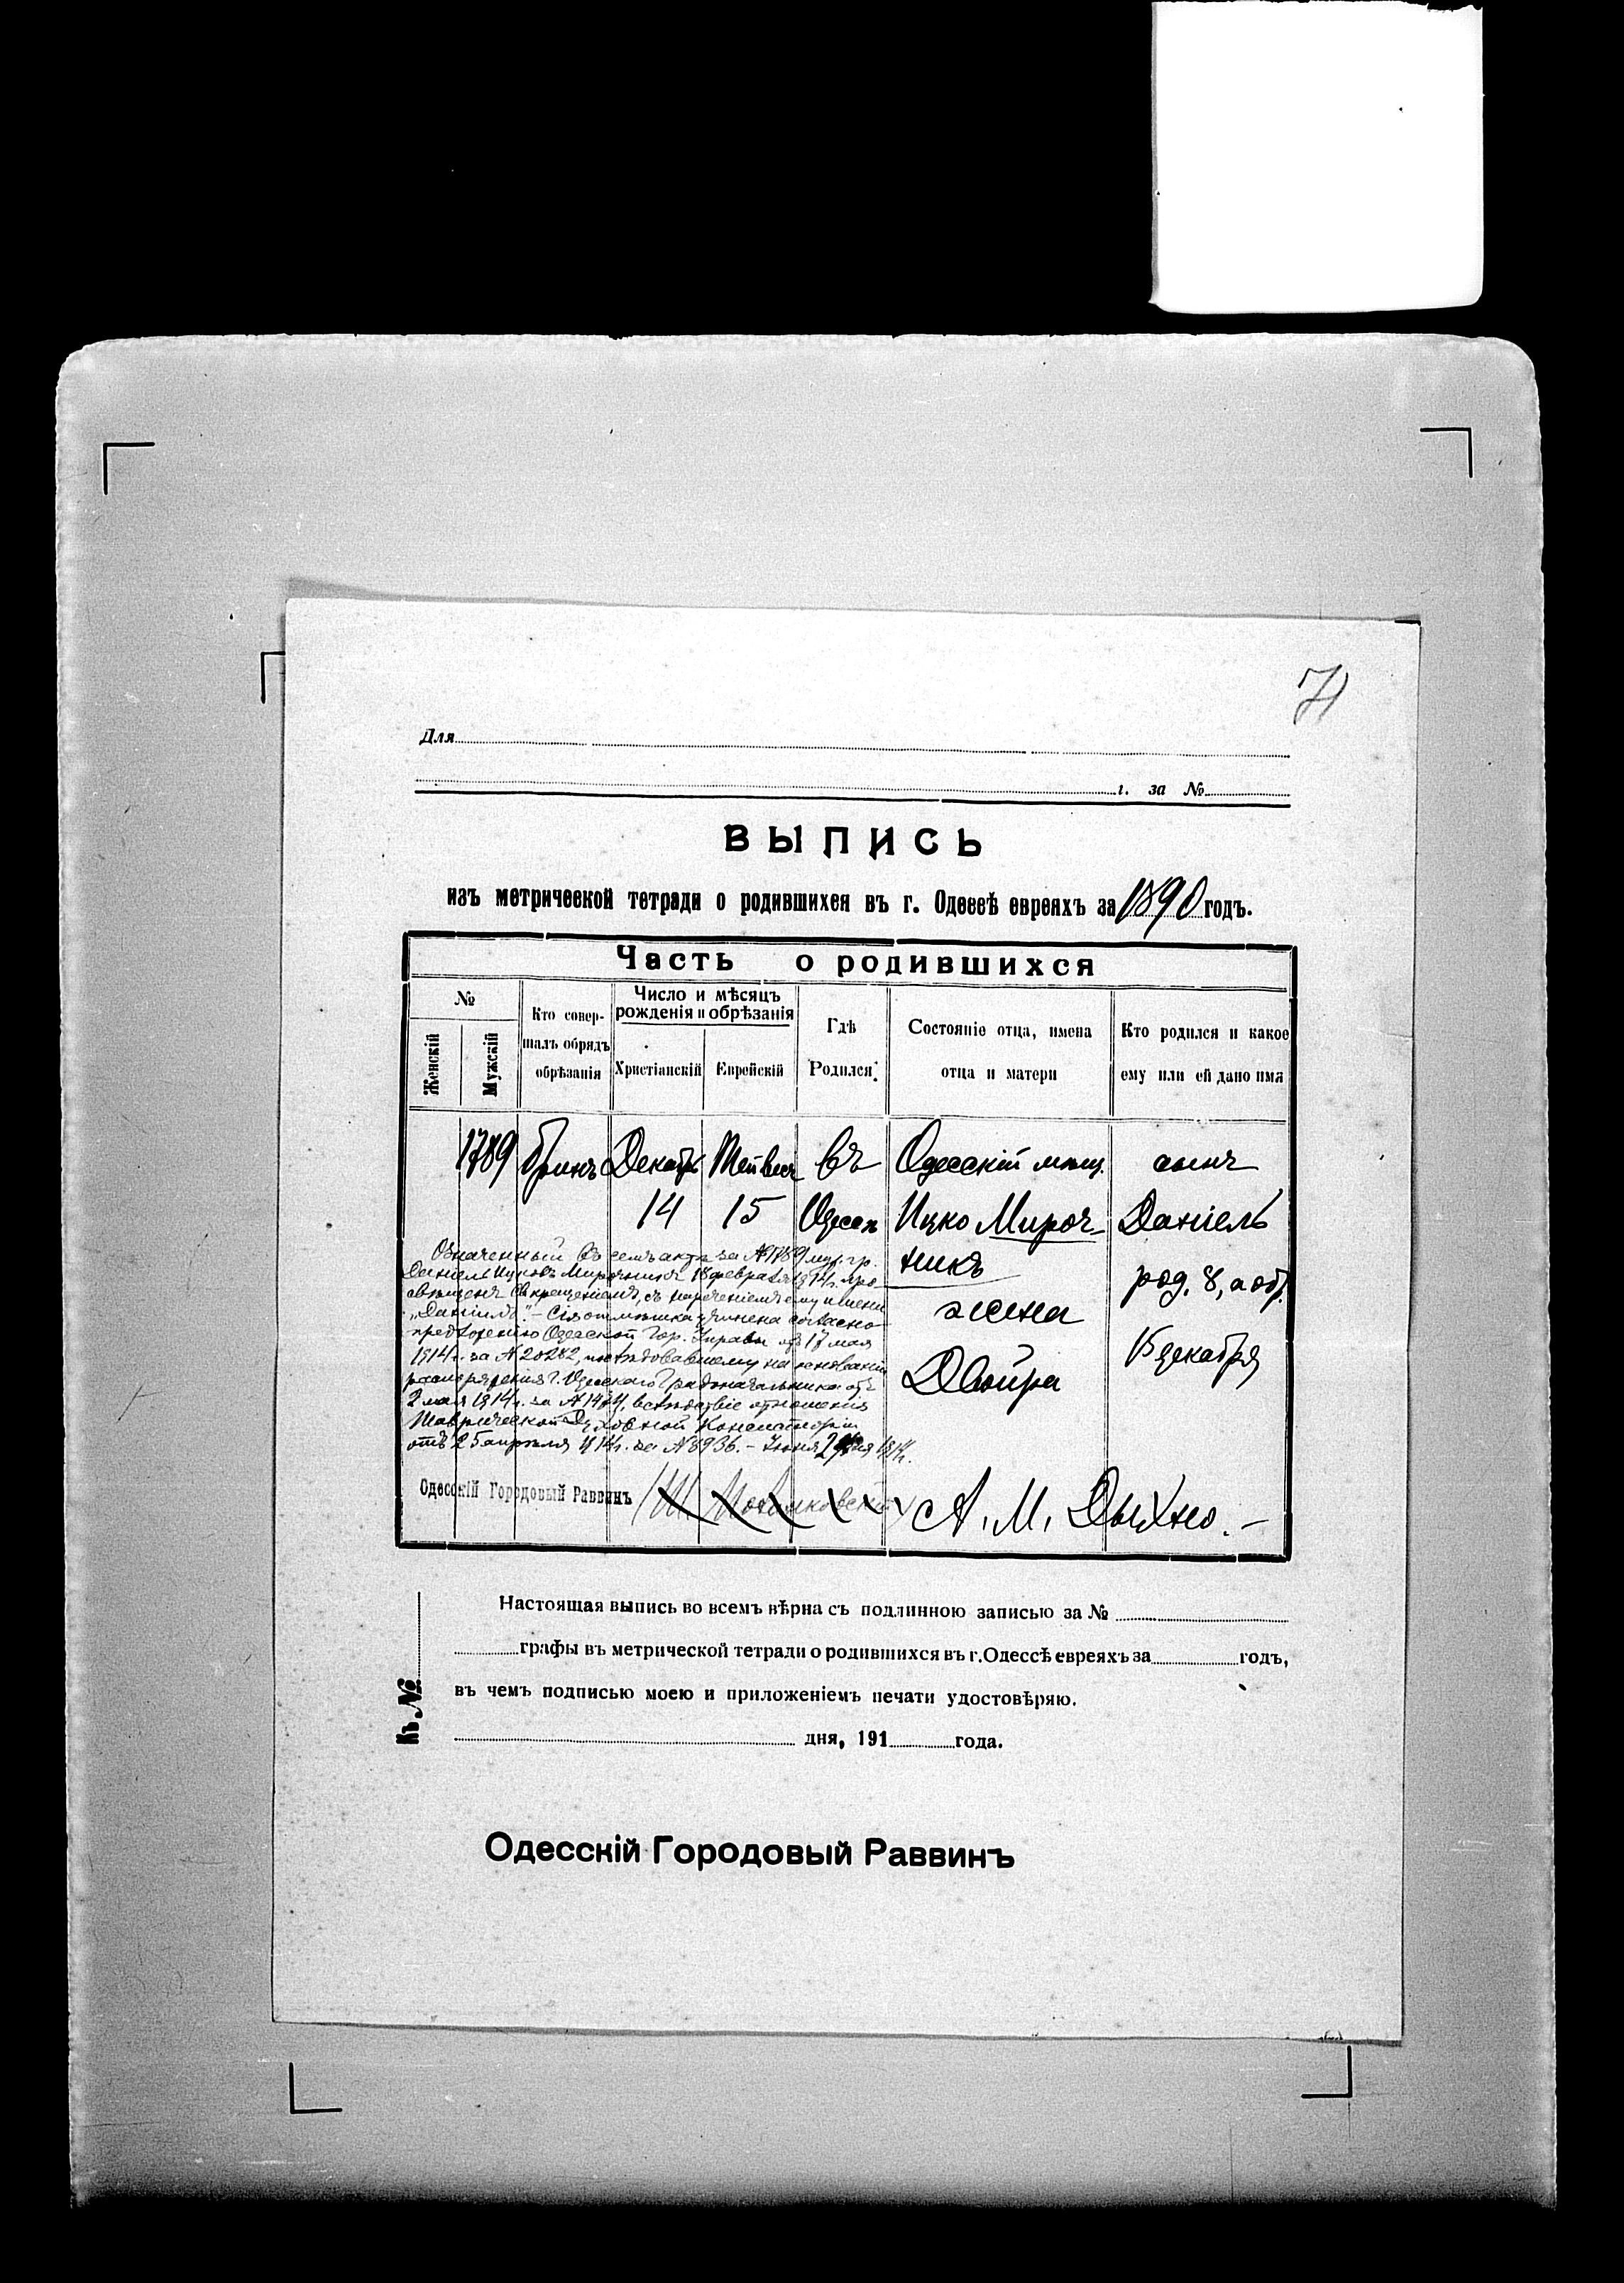 71
Для
г. за №
ВЫПИСЬ
изъ метрической тетради о родившихся въ г. Одессѣ евреяхъ за 1890 годъ.
Часть о родившихся
№
Женскій
Мужскій
Кто совер-
шалъ обрядъ
обрѣзанія
Число и мѣсяцъ
рожденія и обрѣзанія
Христіанскій
Еврейскій
Гдѣ
Родился
Состояніе отца, имена
отца и матери
Кто родился и какое
ему или ей дано имя
1789
Декабрь
14
15
въ
Одессѣ
Одесскій мѣщ.
Ицко Мироч-
никъ
жена
Двойра
сынъ
Даніель
род. 8, а обр.
15 декабря
Означенный въ семъ актѣ за №1789 муж. гр.
Даніель Ицковъ Мирочникъ 18 февраля 1914г. про-
свѣщенъ св. крещеніемъ, съ нареченіемъ ему имени
„Даніилъ“. – Сія отмѣтка учинена согласно
предложенію Одесской Гор. Управы отъ 17 мая
1914г. за №20282, послѣдовавшему на основаніи
распоряженія Г. Одесскаго Градоначальника отъ
2 мая 1914г. за № вслѣдствіе отношенія
Таврической Духовной Консисторіи
отъ 25 апрѣля 1914г. за №8936. – Іюня 1914г.
Одесскій Городовый Раввинъ
А. М. Дыхно. –
Настоящая выпись во всемъ вѣрна съ подлинною записью за №
графы въ метрической тетради о родившихся въ г. Одессѣ евреяхъ за годъ,
въ чемъ подписью моею и приложеніемъ печати удостовѣряю.
дня, 191 года.
Къ №
Одесскій Городовый Раввинъ